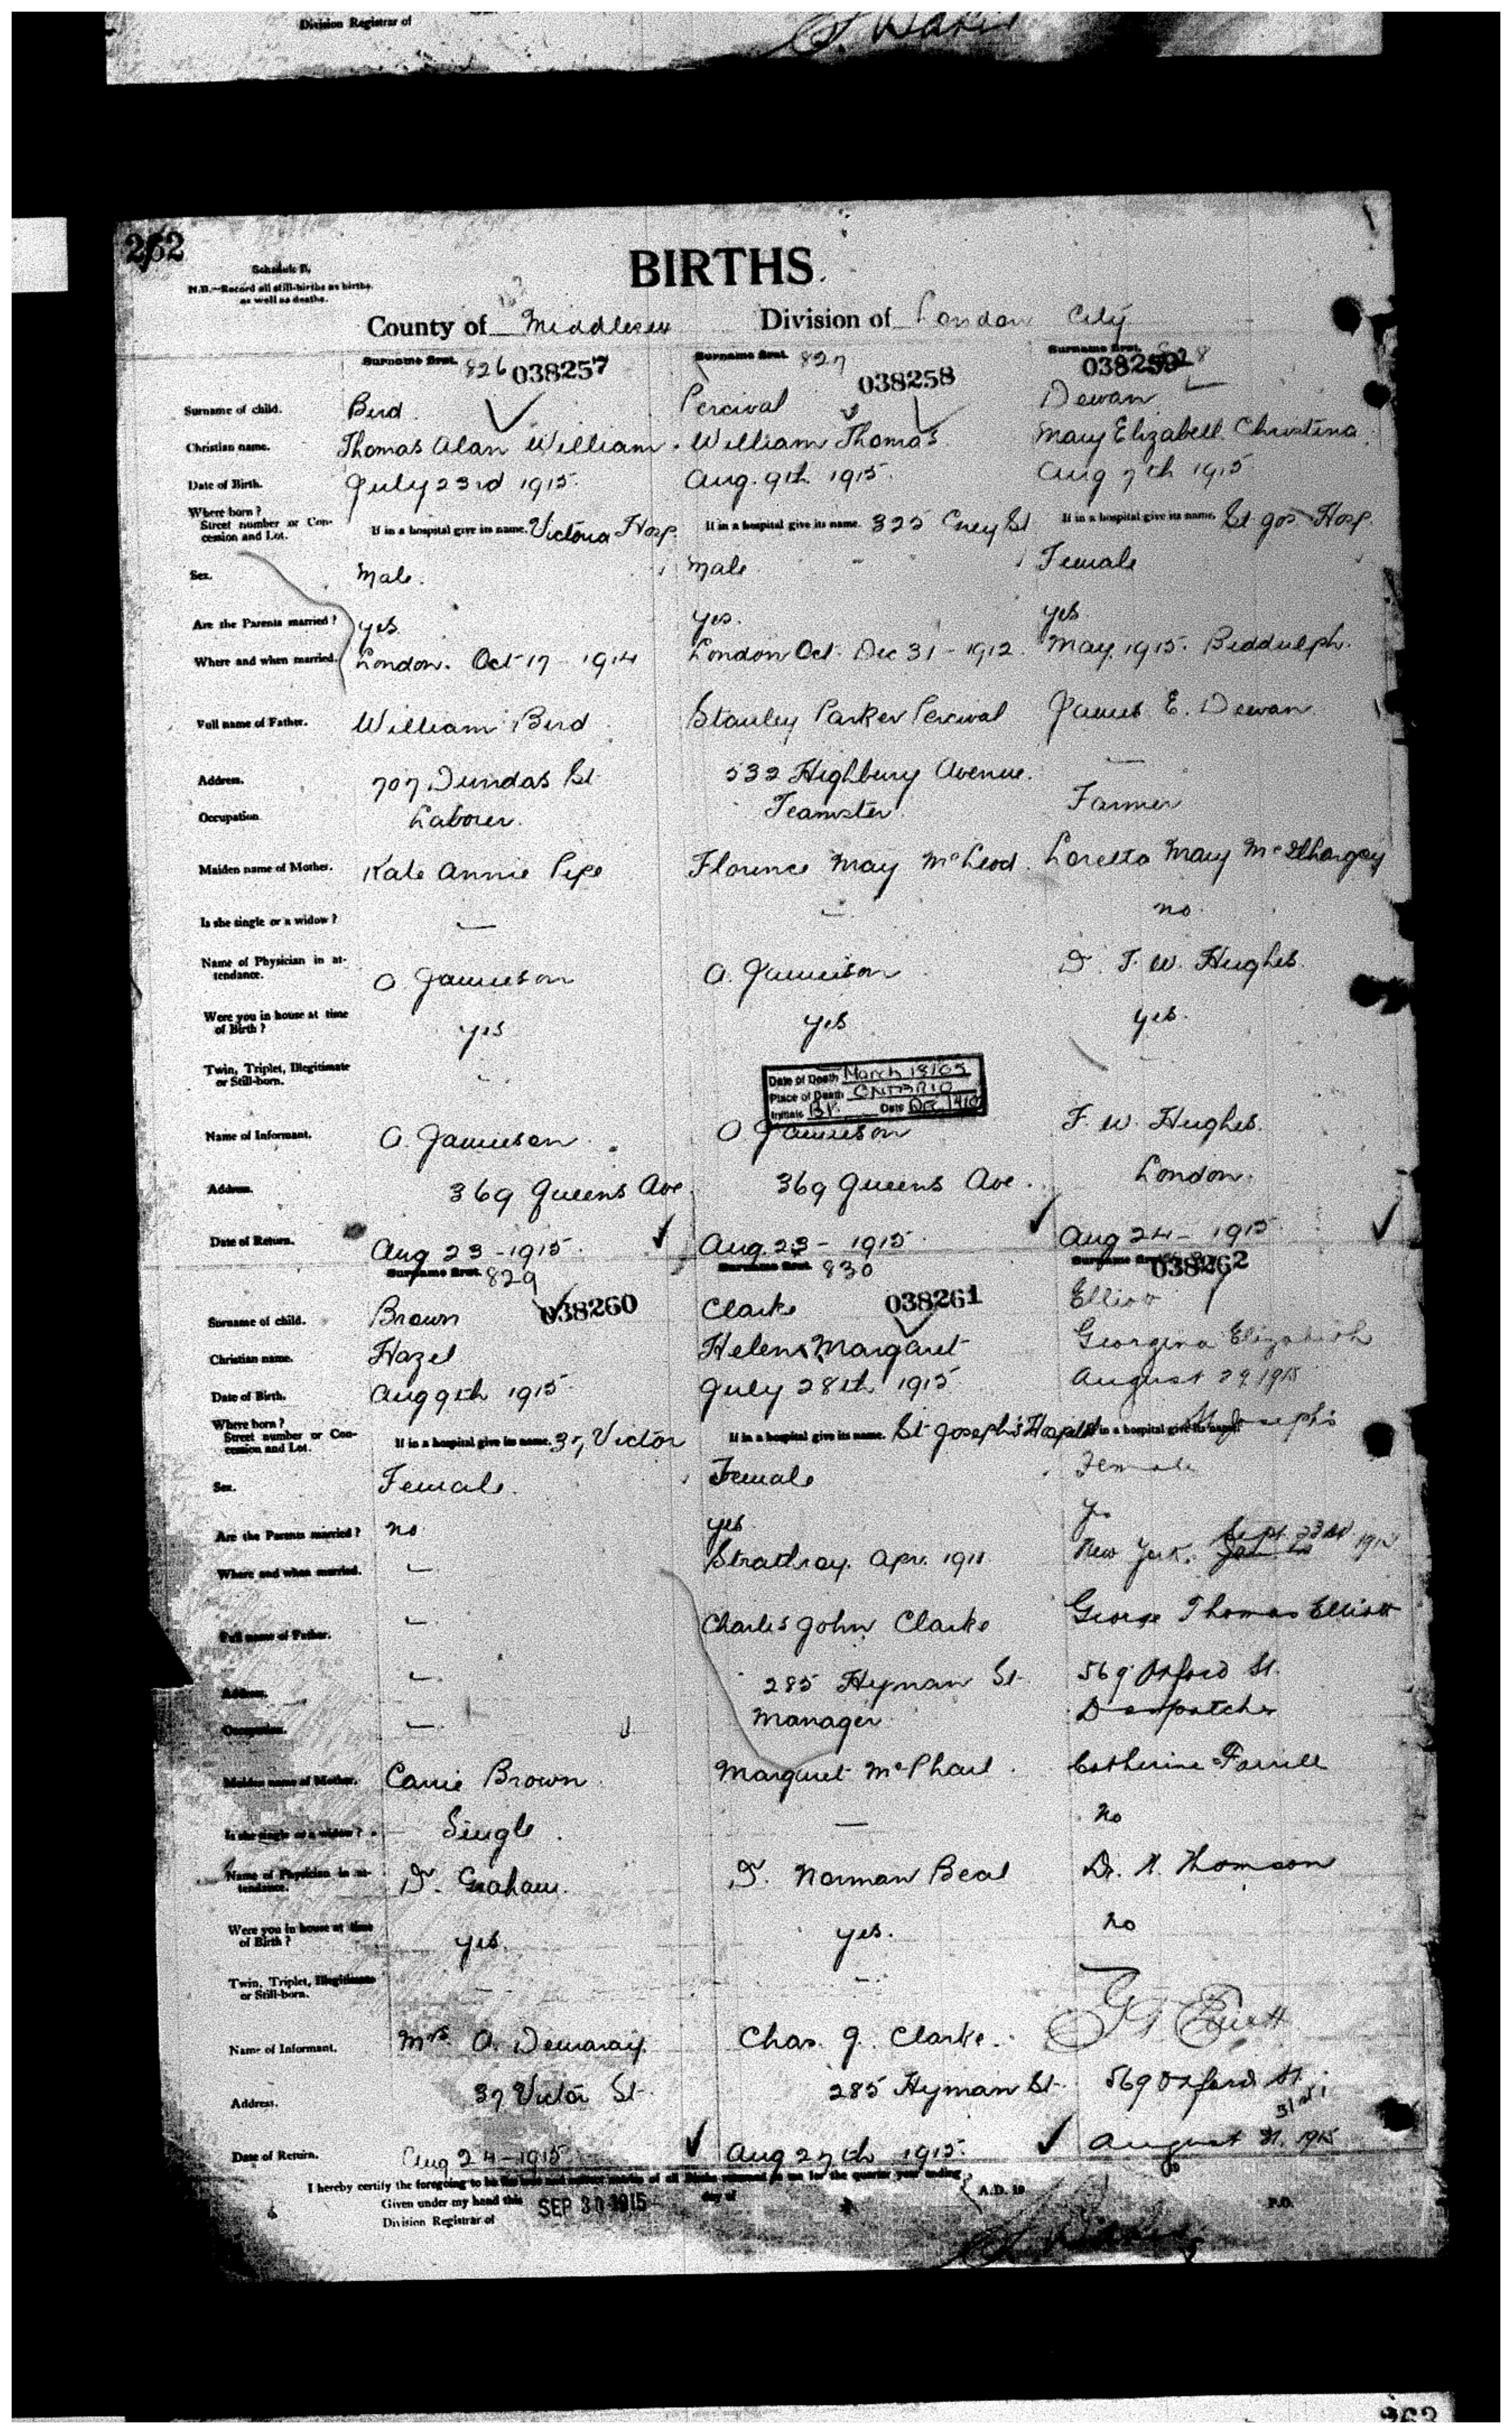 Division Registrar of
262
Schedule B.
N.B.—Record all still-births as births
as well as deaths.
BIRTHS.
County of Middlesex Division of London City
Surname first. 826 038257 Surname first. 827 038258 Surname first. 828 038259
Surname of child. Bird Percival Dewan
Christian name. Thomas Alan William. William Thomas Mary Elizabeth Christina
Date of Birth. July 23rd 1915. Aug. 9th 1915. Aug 7th 1915
Where born?
Street number or Con-
cession and Lot. If in a hospital give its name. Victoria Hosp. If in a hospital give its name. 325 Grey St If in a hospital give its name. St Jos Hosp
Sex. Male. Male Female
Are the Parents married? yes yes. yes
Where and when married. London. Oct 17 - 1914 London Oct Dec 31 - 1912. May. 1915. Biddulph.
Full name of Father. William Bird Stanley Parker Percival James E. Dewan
Address. 707 Dundas St 532 Highbury Avenue. —
Occupation. Laborer. Teamster Farmer
Maiden name of Mother. Kate Annie Pipe Florence May McLeod. Loretta Mary McIlhargey
Is she single or a widow? — — no
Name of Physician in at-
tendance. A. Jamieson A. Jamieson Dr. F. W. Hughes.
Were you in house at time
of Birth? yes yes yes.
Twin, Triplet, Illegitimate
or Still-born. - -
Date of Death March 13/65
Place of Death ONTARIO
Initials B.V. Date
Name of Informant. A. Jamieson A Jamieson F. W. Hughes.
Address. 369 Queens Ave. 369 Queens Ave. London.
Date of Return. Aug 23 - 1915. Aug. 23 - 1915. Aug 24 - 1915
Surname first. 829 038260 Surname first. 830 038261 Surname first. 038262
Surname of child. Brown Clarke Elliott
Christian name. Hazel Helen Margaret Georgina Elizabeth
Date of Birth. Aug 9th 1915 July 28th 1915 August 29 1915
Where born?
Street number or Con-
cession and Lot. If in a hospital give its name. 37 Victor If in a hospital give its name. St Joseph's Hospital If in a hospital give its name. St Joseph's
Sex. Female. Female Female
Are the Parents married? no yes
Where and when married. — Strathroy. Apr. 1911 New York. Sept 23rd
Full name of Father. — Charles John Clarke George Thomas Elliott
Address. — 285 Hyman St 569 Oxford St.
Occupation. — Manager Despatcher
Maiden name of Mother. Carrie Brown Margaret McPhail. Catherine Farrell
Is she single or a widow? Single. — no
Name of Physician in at-
tendance. Dr. Graham. Dr. Norman Beal Dr. Thomson
Were you in house at time
of Birth? yes. yes. no
Twin, Triplet, Illegitimate
or Still-born. - -
Name of Informant. Mrs A. Demaray. Chas. J. Clarke. G T Elliott
Address. 37 Victor St 285 Hyman St 569 Oxford St.
31st
Date of Return. Aug 24 - 1915 Aug 27th 1915. August 31. 1915
I hereby certify the foregoing to be the true and correct of all Births returned to me for the quarter year ending
Given under my hand this SEP 30 1915 day of A.D. 19
Division Registrar of P.O.
263